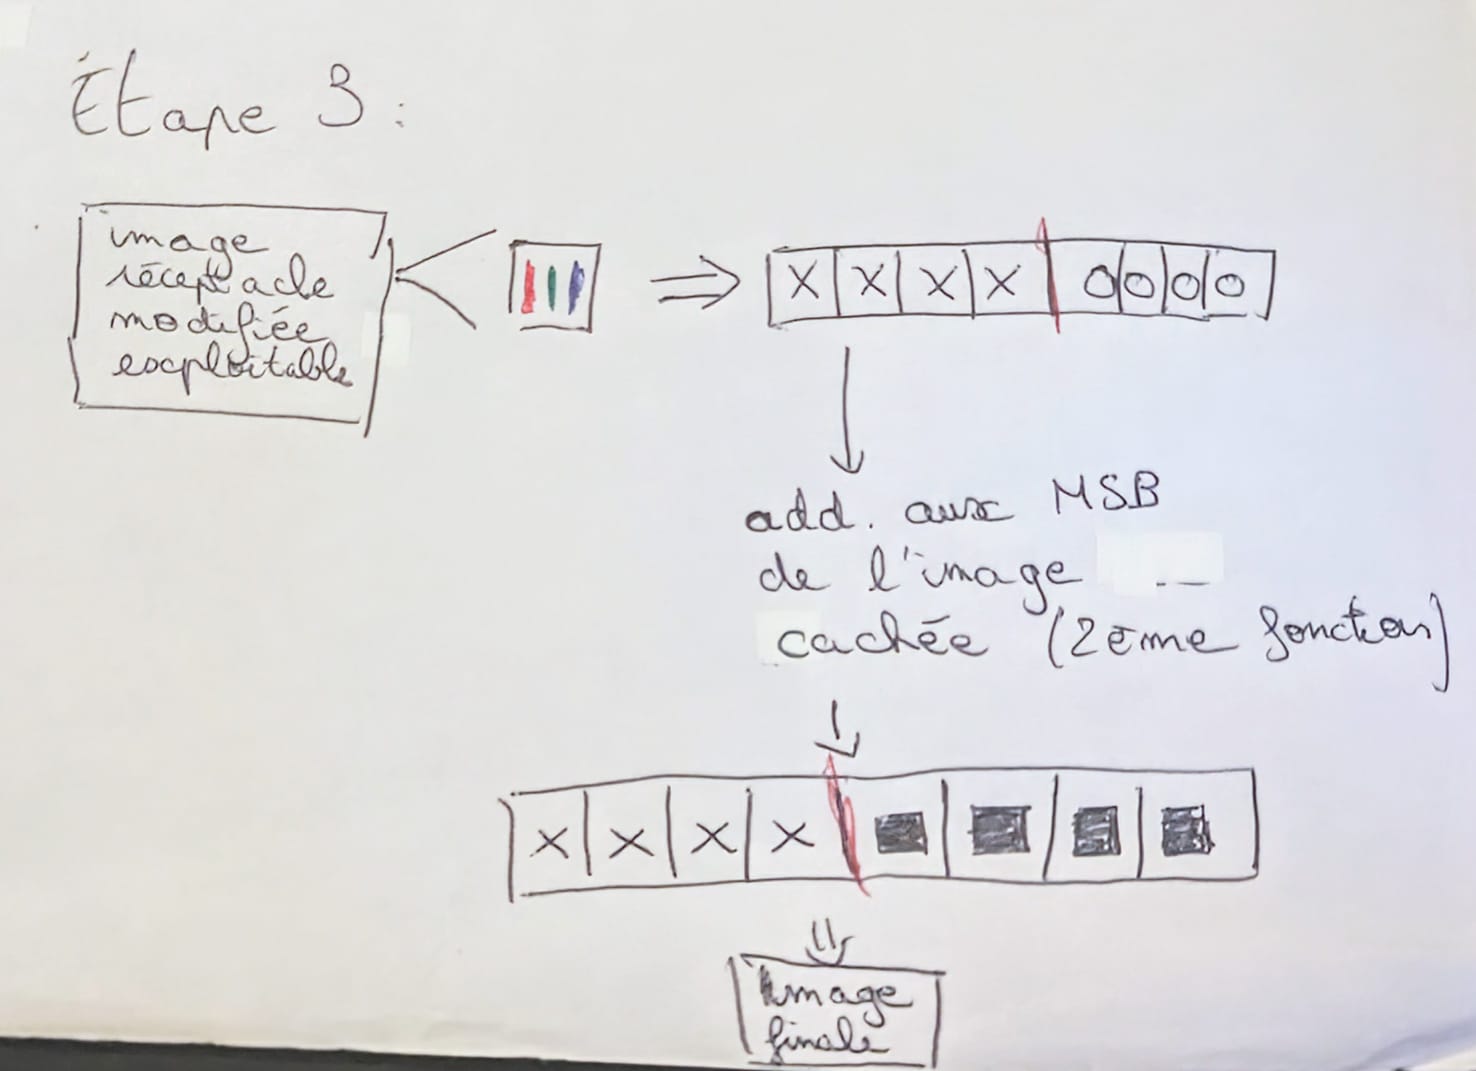 Étape 3 :
image
réceptacle
modifiée
exploitable
X X X X 0 0 0 0
add. aux MSB
de l'image
cachée (2ème fonction)
X X X X
image
finale